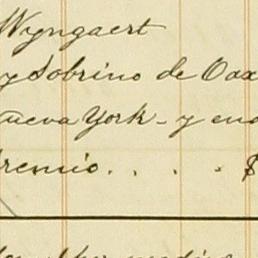 Wyngaert
y Sobrino de Oax
ueva York - y en
remio . . . . $